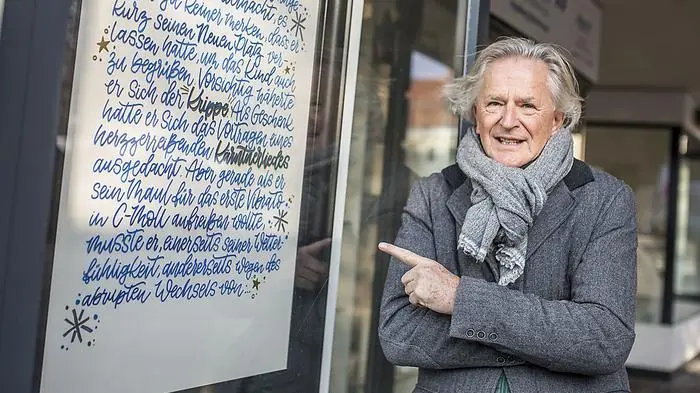 kurz seinen Neuen Platz ver-
lassen hatte, um das Kind auch
zu begrüßen. Vorsichtig näherte
er sich der Krippe. Als Geschenk
hatte er sich das Vortragen eines
herzzerreißenden Kärntnerliedes
ausgedacht. Aber gerade als er
sein Maul für das erste Vibrato
in C-Moll aufreißen wollte,
musste er, einerseits seiner Wetter-
fühligkeit, andererseits wegen des
abrupten Wechsels von...